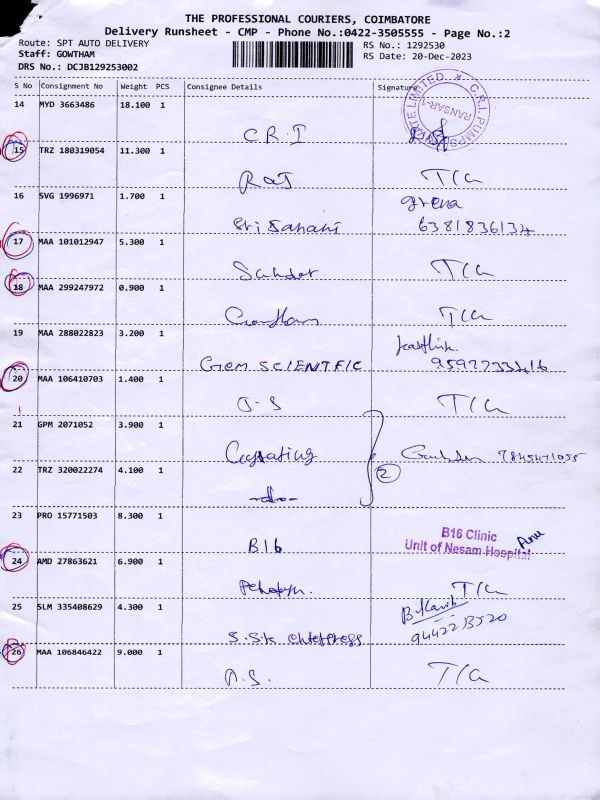 THE PROFESSIONAL COURIERS, COIMBATORE
Delivery Runsheet - CMP - Phone No.:0422-3505555 - Page No.:2
Route: SPT AUTO DELIVERY
RS No.: 1292530
Staff: GOWTHAM
RS Date: 20-Dec-2023
DRS No.: DCJB129253002
S No Consignment No Weight PCS Consignee Details Signature
14 MYD 3663486 18.100 1
C.R.I
C.R.I. PUMPS PRIVATE LIMITED
15 TRZ 180319054 11.300 1
RAJ T/C
16 SVG 1996971 1.700 1
Sri 6381836134
17 MAA 101012947 5.300 1
T/C
18 MAA 299247972 0.900 1
T/C
19 MAA 288022823 3.200 1
Gem SCIENTFIC
20 MAA 106410703 1.400 1
J-S T/C
21 GPM 2071052 3.900 1
22 TRZ 320022274 4.100 1
2
-do-
23 PRO 15771503 8.300 1
B16
B16 Clinic
Unit of Nesam Hospital
24 AMD 27863621 6.900 1
T/C
25 SLM 335408629 4.300 1
S.S.K
26 MAA 106846422 9.000 1
A.S. T/C